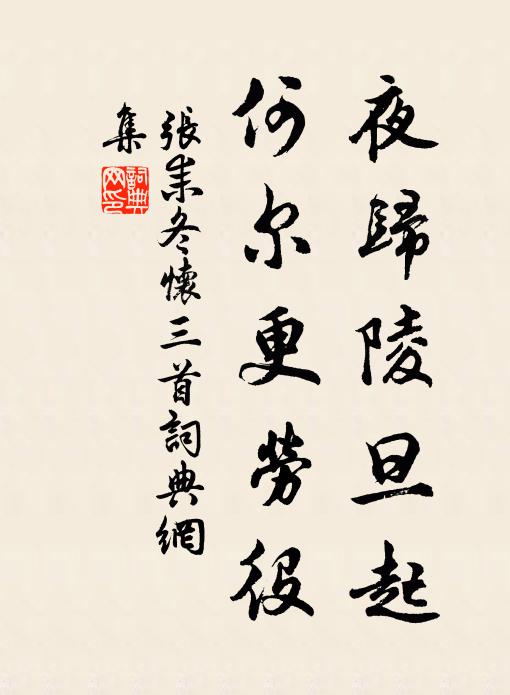 夜歸陵旦起
何尔更勞役
張耒冬懷三首詞典網
集
詞典
网印